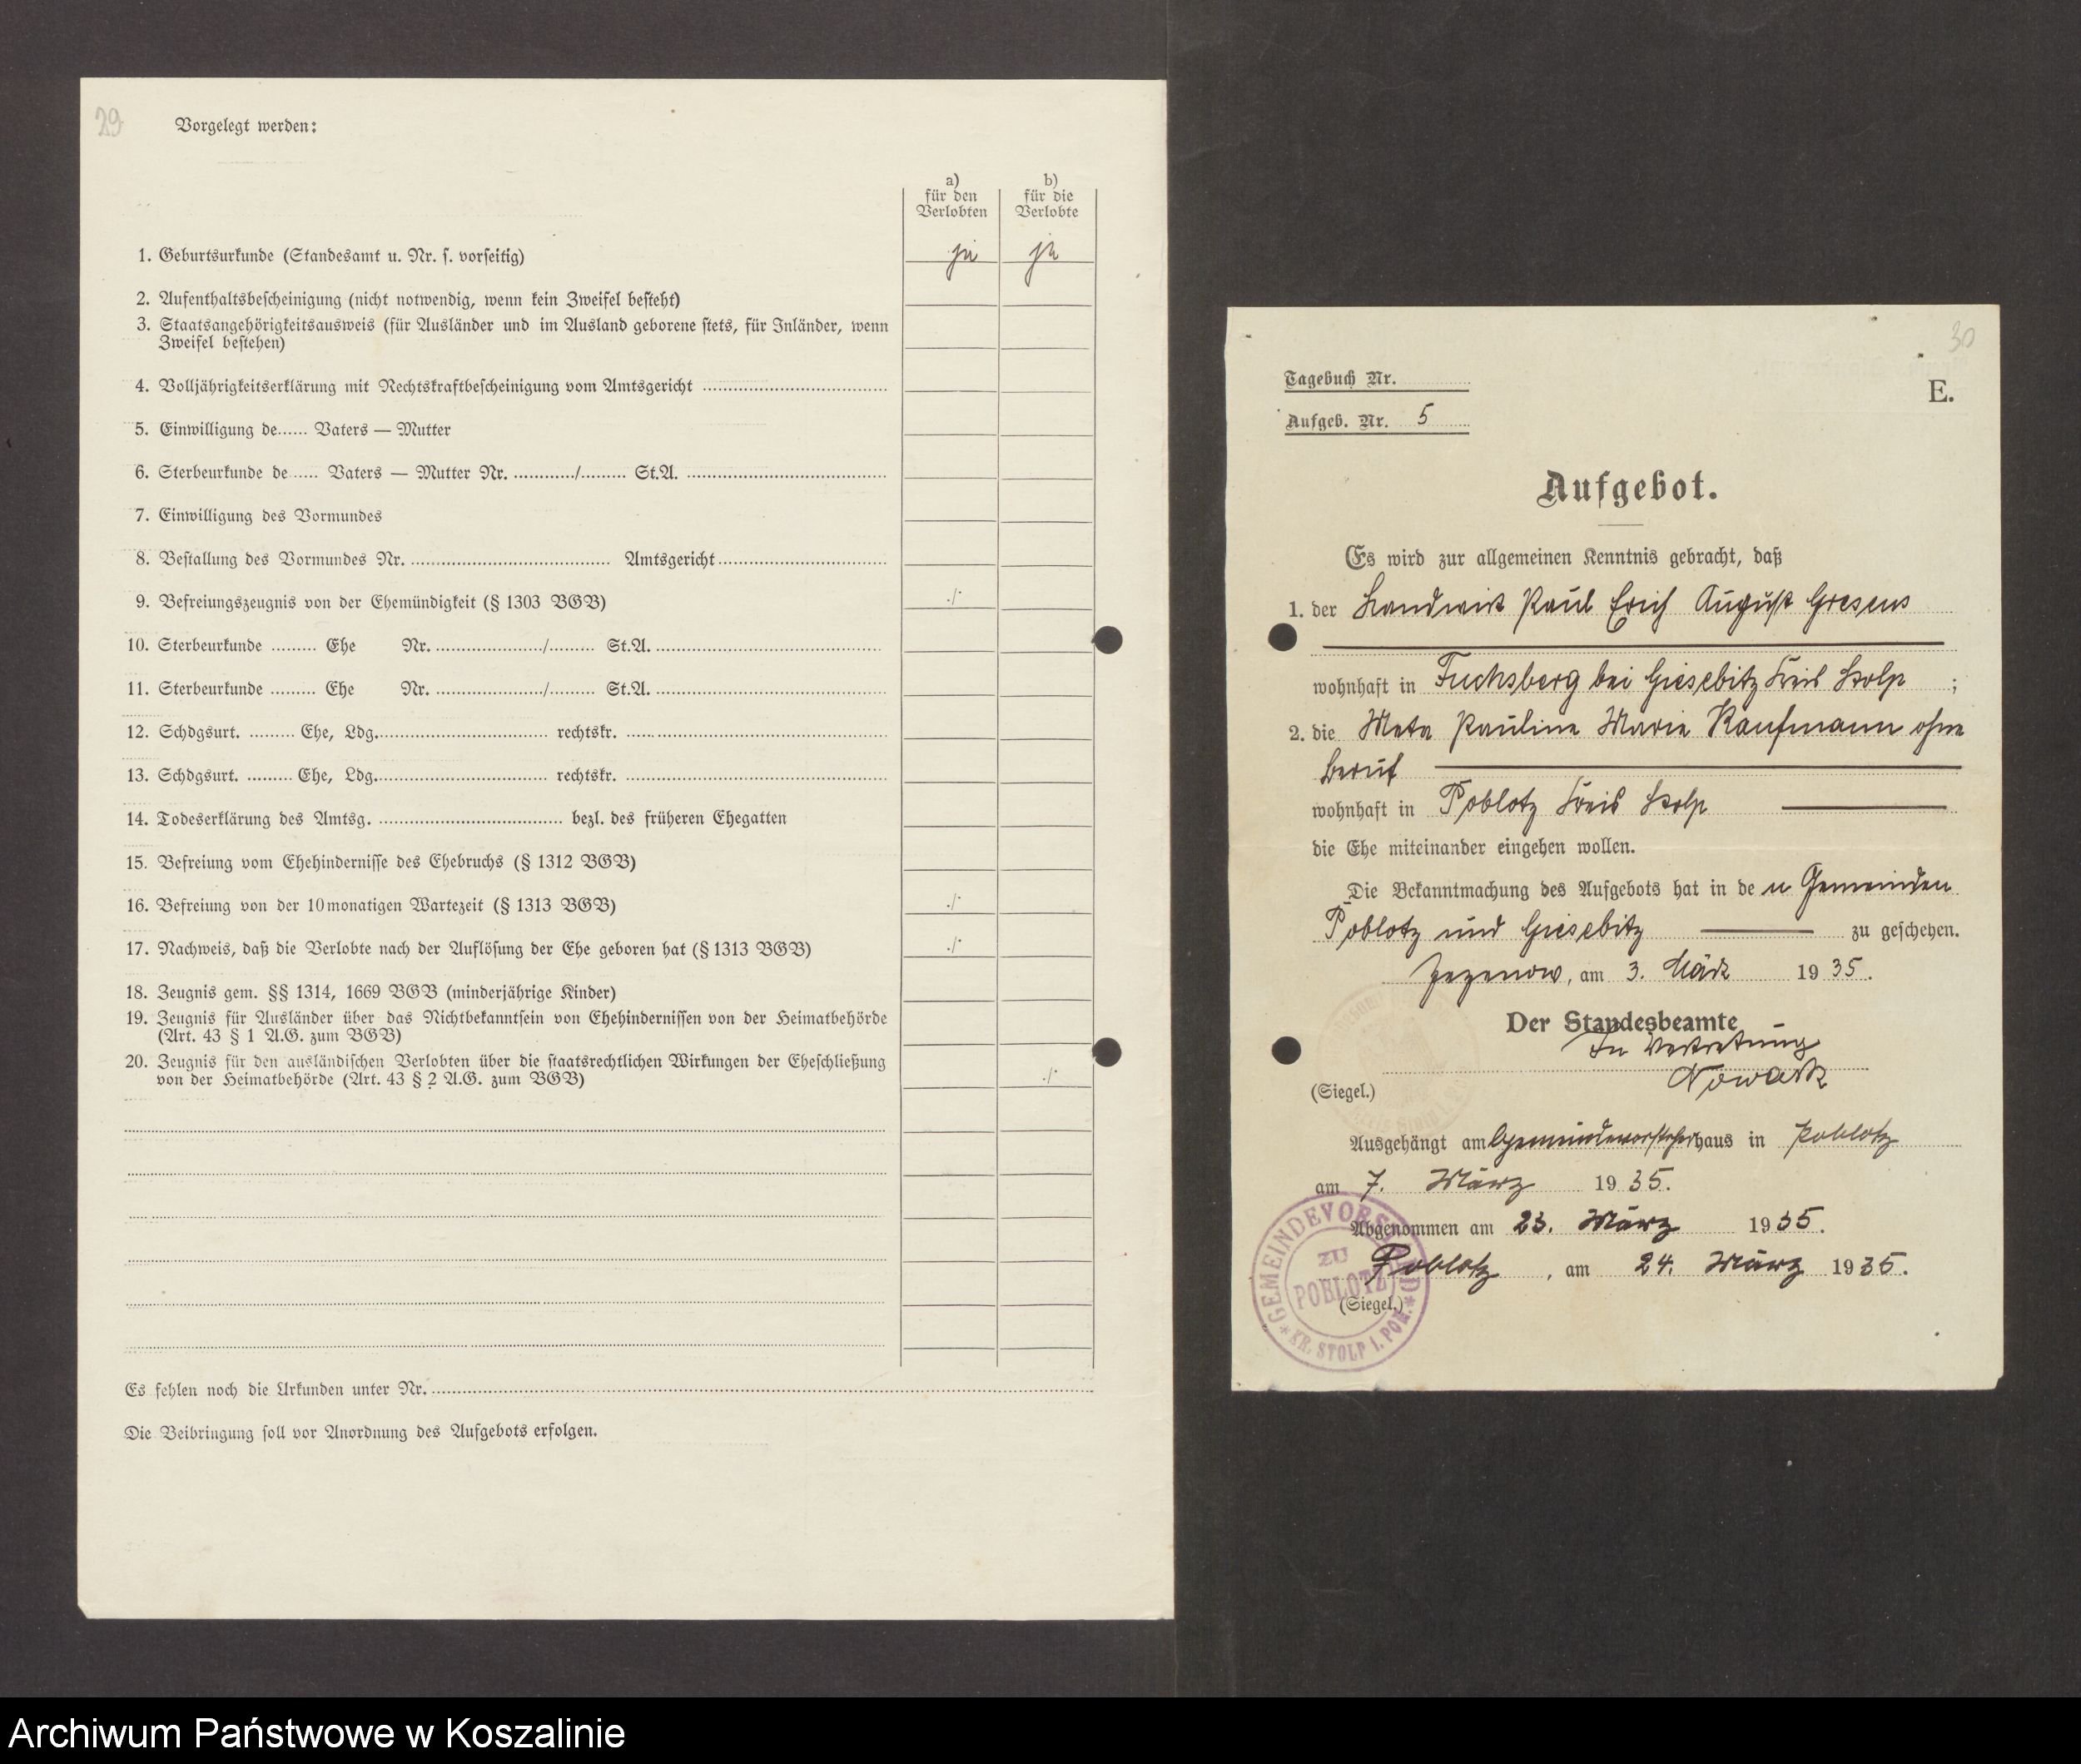 29
Vorgelegt werden:
a) für den Verlobten
b) für die Verlobte
1. Geburtsurkunde (Standesamt u. Nr. s. vorseitig) ja ja
2. Aufenthaltsbescheinigung (nicht notwendig, wenn kein Zweifel besteht)
3. Staatsangehörigkeitsausweis (für Ausländer und im Ausland geborene stets, für Inländer, wenn
Zweifel bestehen)
4. Volljährigkeitserklärung mit Rechtskraftbescheinigung vom Amtsgericht
5. Einwilligung de...... Vaters — Mutter
6. Sterbeurkunde de...... Vaters — Mutter Nr. ............/......... St.A.
7. Einwilligung des Vormundes
8. Bestallung des Vormundes Nr. .................. Amtsgericht
9. Befreiungszeugnis von der Ehemündigkeit (§ 1303 BGB) ./.
10. Sterbeurkunde ......... Ehe Nr. ............/......... St.A.
11. Sterbeurkunde ......... Ehe Nr. ............/......... St.A.
12. Schdgsurt. ......... Ehe, Ldg. .................. rechtskr.
13. Schdgsurt. ......... Ehe, Ldg. .................. rechtskr.
14. Todeserklärung des Amtsg. .................. bezl. des früheren Ehegatten
15. Befreiung vom Ehehindernisse des Ehebruchs (§ 1312 BGB)
16. Befreiung von der 10monatigen Wartezeit (§ 1313 BGB) ./.
17. Nachweis, daß die Verlobte nach der Auflösung der Ehe geboren hat (§ 1313 BGB) ./.
18. Zeugnis gem. §§ 1314, 1669 BGB (minderjährige Kinder)
19. Zeugnis für Ausländer über das Nichtbekanntsein von Ehehindernissen von der Heimatbehörde
(Art. 43 § 1 A.G. zum BGB)
20. Zeugnis für den ausländischen Verlobten über die staatsrechtlichen Wirkungen der Eheschließung
von der Heimatbehörde (Art. 43 § 2 A.G. zum BGB) ./.
Es fehlen noch die Urkunden unter Nr.
Die Beibringung soll vor Anordnung des Aufgebots erfolgen.
30
Tagebuch Nr.
E.
Aufgeb. Nr. 5
Aufgebot.
Es wird zur allgemeinen Kenntnis gebracht, daß
1. der Landwirt Paul Erich August Gresens
wohnhaft in Fuchsberg bei Giesebitz Kreis Stolp ;
2. die Meta Pauline Marie Kaufmann ohne
Beruf
wohnhaft in Poblotz Kreis Stolp
die Ehe miteinander eingehen wollen.
Die Bekanntmachung des Aufgebots hat in de n Gemeinden
Poblotz und Giesebitz zu geschehen.
Zezenow, am 3. März 1935.
Der Standesbeamte
In Vertretung
Nowack
(Siegel.)
Ausgehängt am Gemeindevorsteherhaus in Poblotz
am 7. März 1935.
Abgenommen am 23. März 1935.
Poblotz, am 24. März 1935.
(Siegel.)
GEMEINDEVORSTAND
ZU
POBLOTZ
* KR. STOLP I. POM. *
Archiwum Państwowe w Koszalinie